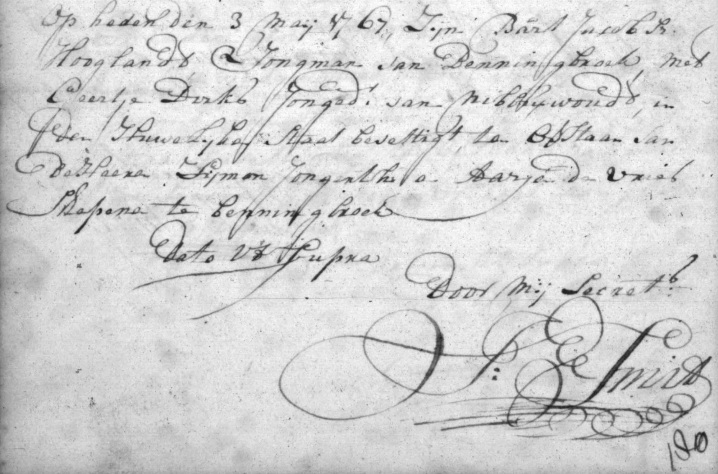 Op heden den 3 Maij 1767, Zijn Bart Jacobsz.
Hooglandt, Jongman van Benningbroek, met
Geertje Dirks Jonged.r van Nibbixwoudt, in
den Huwelijken Staat bevestigt, ten Overstaan van
De Heere Sijmon Jongerkhe en Aarjen de Vries
Schepens te benningbroek
Dato Ut Supra
Door Mij Secret.s
P: Smidt
180